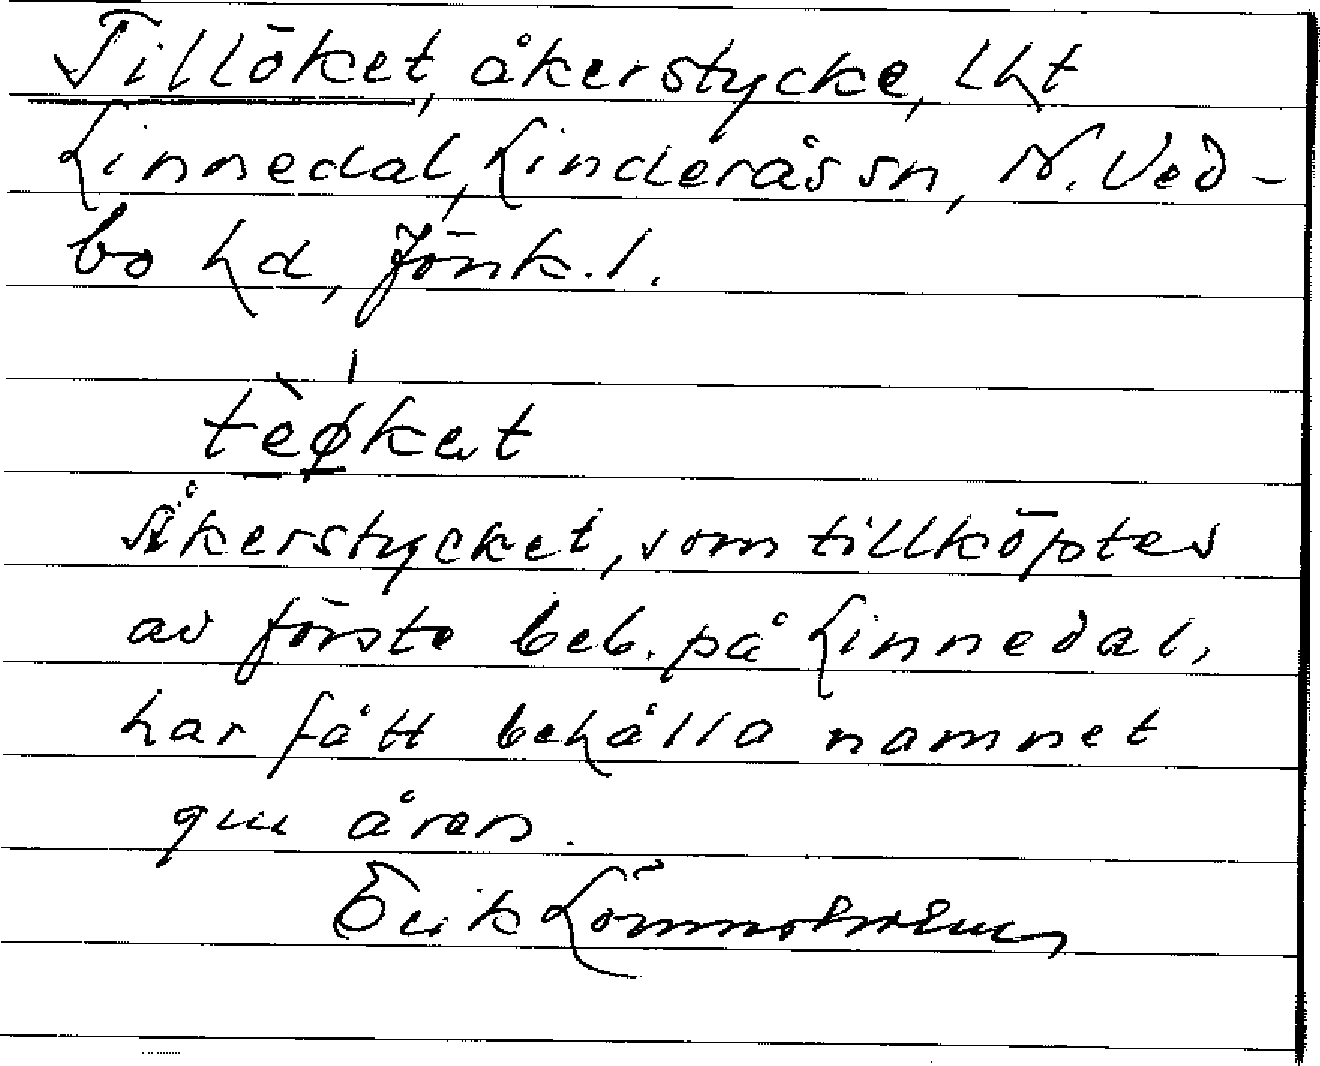 Tillöket, åkerstycke, lht
Linnedal, Linderås sn, N. Ved-
bo hd, Jönk. l.
tèø̀ket
Åkerstycket, som tillköptes
av förste beb. på Linnedal,
har fått behålla namnet
gm åren.
Erik